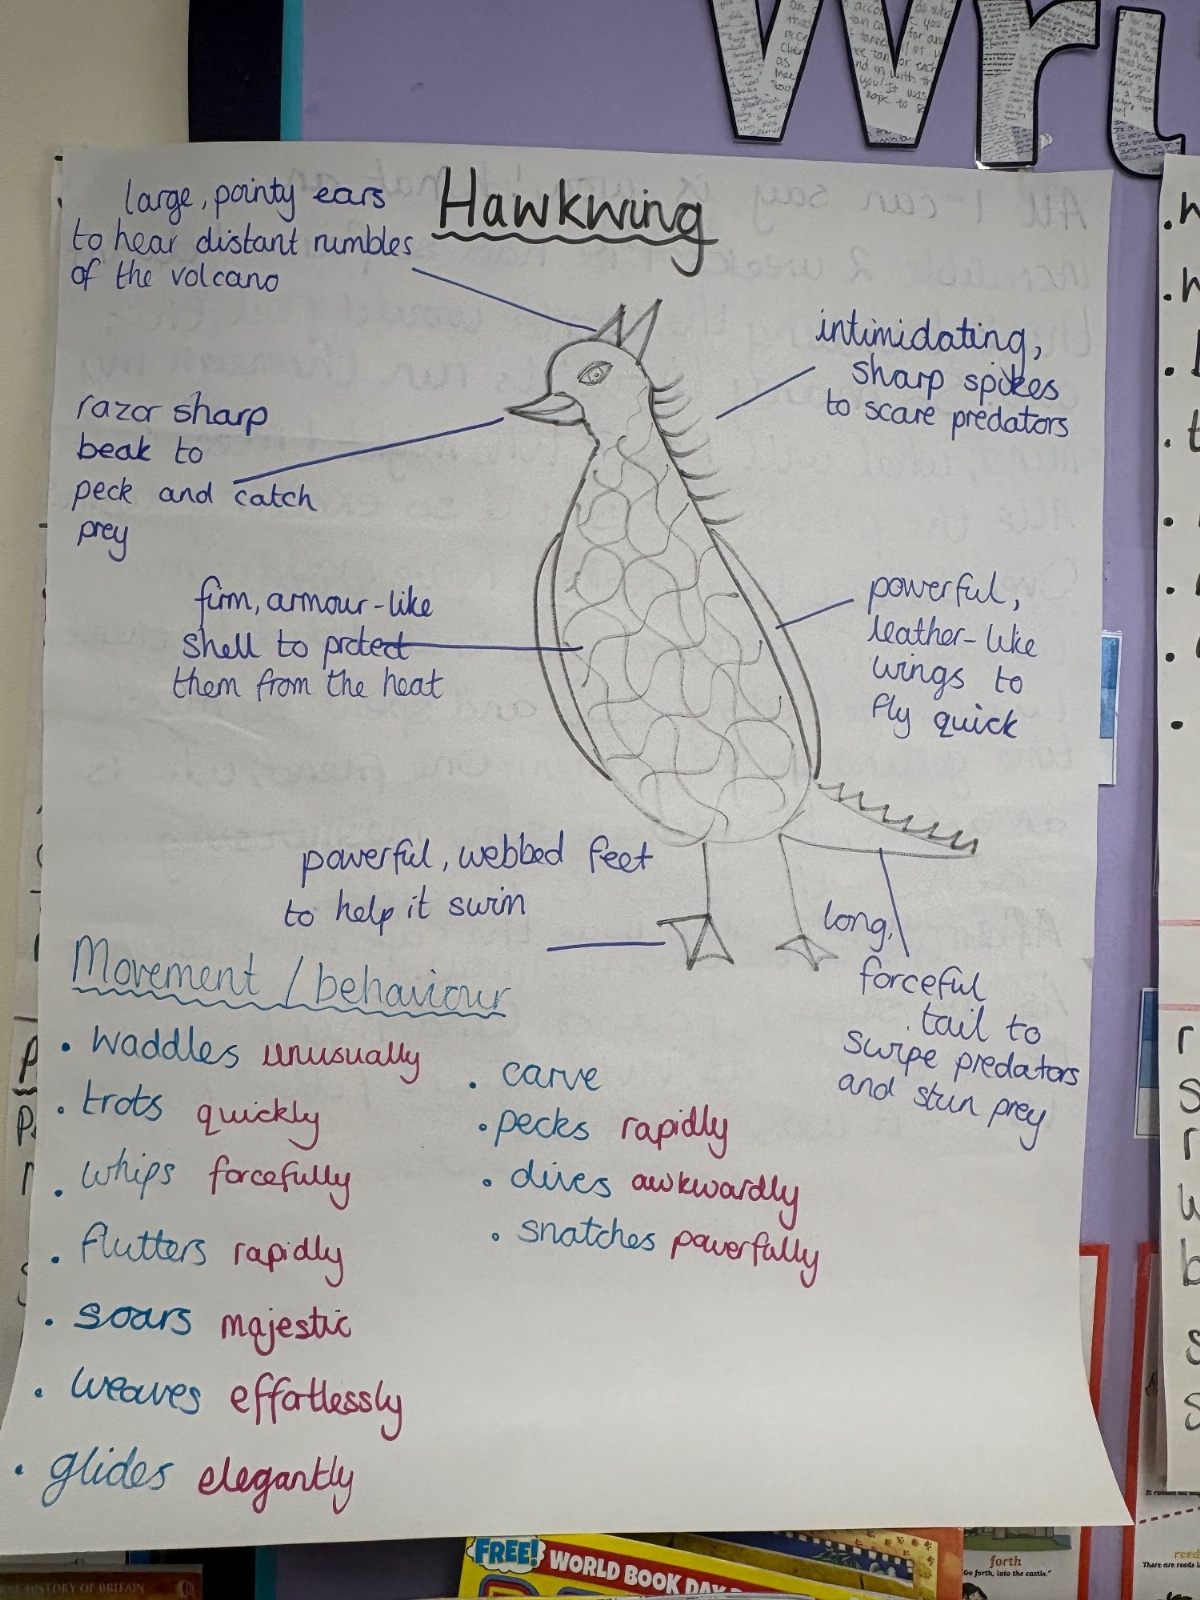 Hawkwing
large, pointy ears
to hear distant rumbles
of the volcano
intimidating,
sharp spikes
to scare predators
razor sharp
beak to
peck and catch
prey
firm, armour-like
shell to protect
them from the heat
powerful,
leather-like
wings to
fly quick
powerful, webbed feet
to help it swim
long,
forceful
tail to
swipe predators
and stun prey
Movement / behaviour
• waddles unusually
• trots quickly
• whips forcefully
• flutters rapidly
• soars majestic
• weaves effortlessly
• glides elegantly
• carve
• pecks rapidly
• dives awkwardly
• snatches powerfully
FREE! WORLD BOOK DAY
HISTORY OF BRITAIN
forth
"Go forth, into the castle."